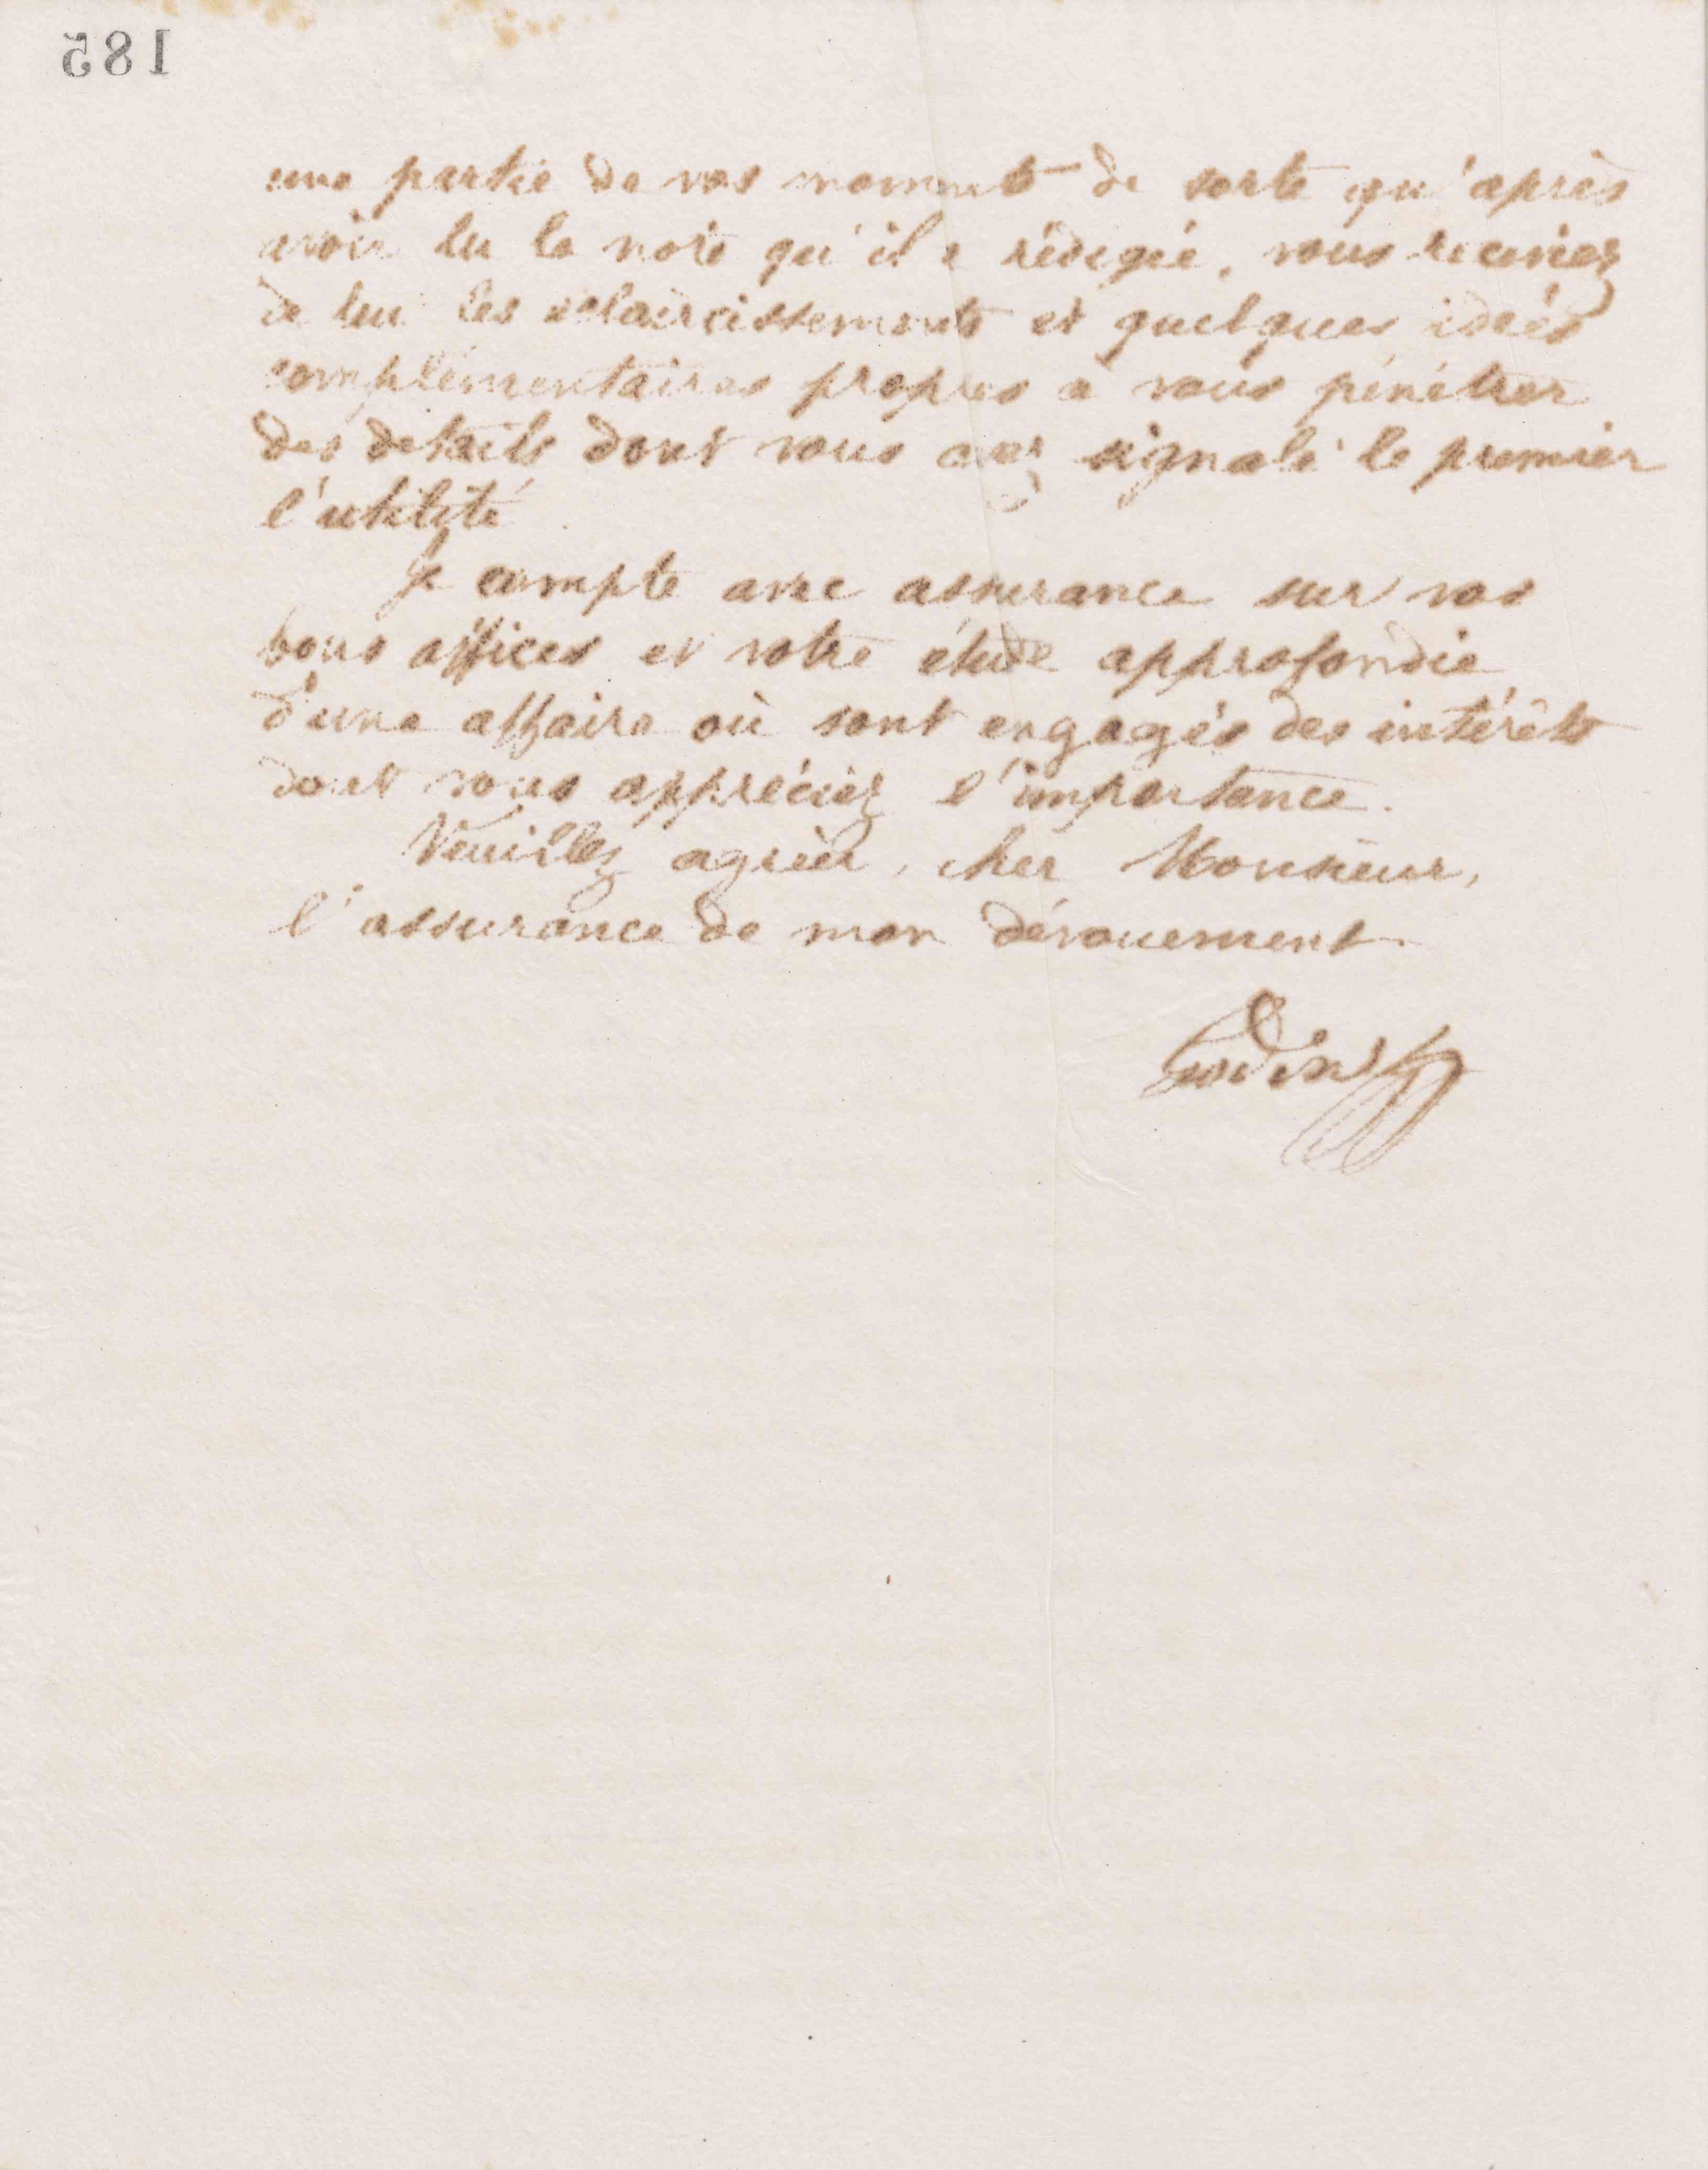 185
une partie de vos moments de sorte qu'après
avoir lu la note qu'il a rédigée, vous receviez
de lui les éclaircissements et quelques idées
complémentaires propres à vous pénétrer
des détails dont vous avez signalé le premier
l'utilité
Je compte avec assurance sur vos
bons offices et votre étude approfondie
d'une affaire où sont engagés des intérêts
dont vous appréciez l'importance.
Veuillez agréer, cher Monsieur,
l'assurance de mon dévouement.
Godin